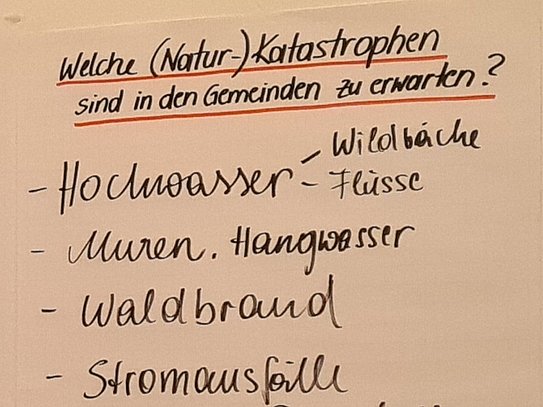 Welche (Natur-)Katastrophen
sind in den Gemeinden zu erwarten?
- Hochwasser - Wildbäche
- Flüsse
- Muren. Hangwasser
- Waldbrand
- Stromausfälle